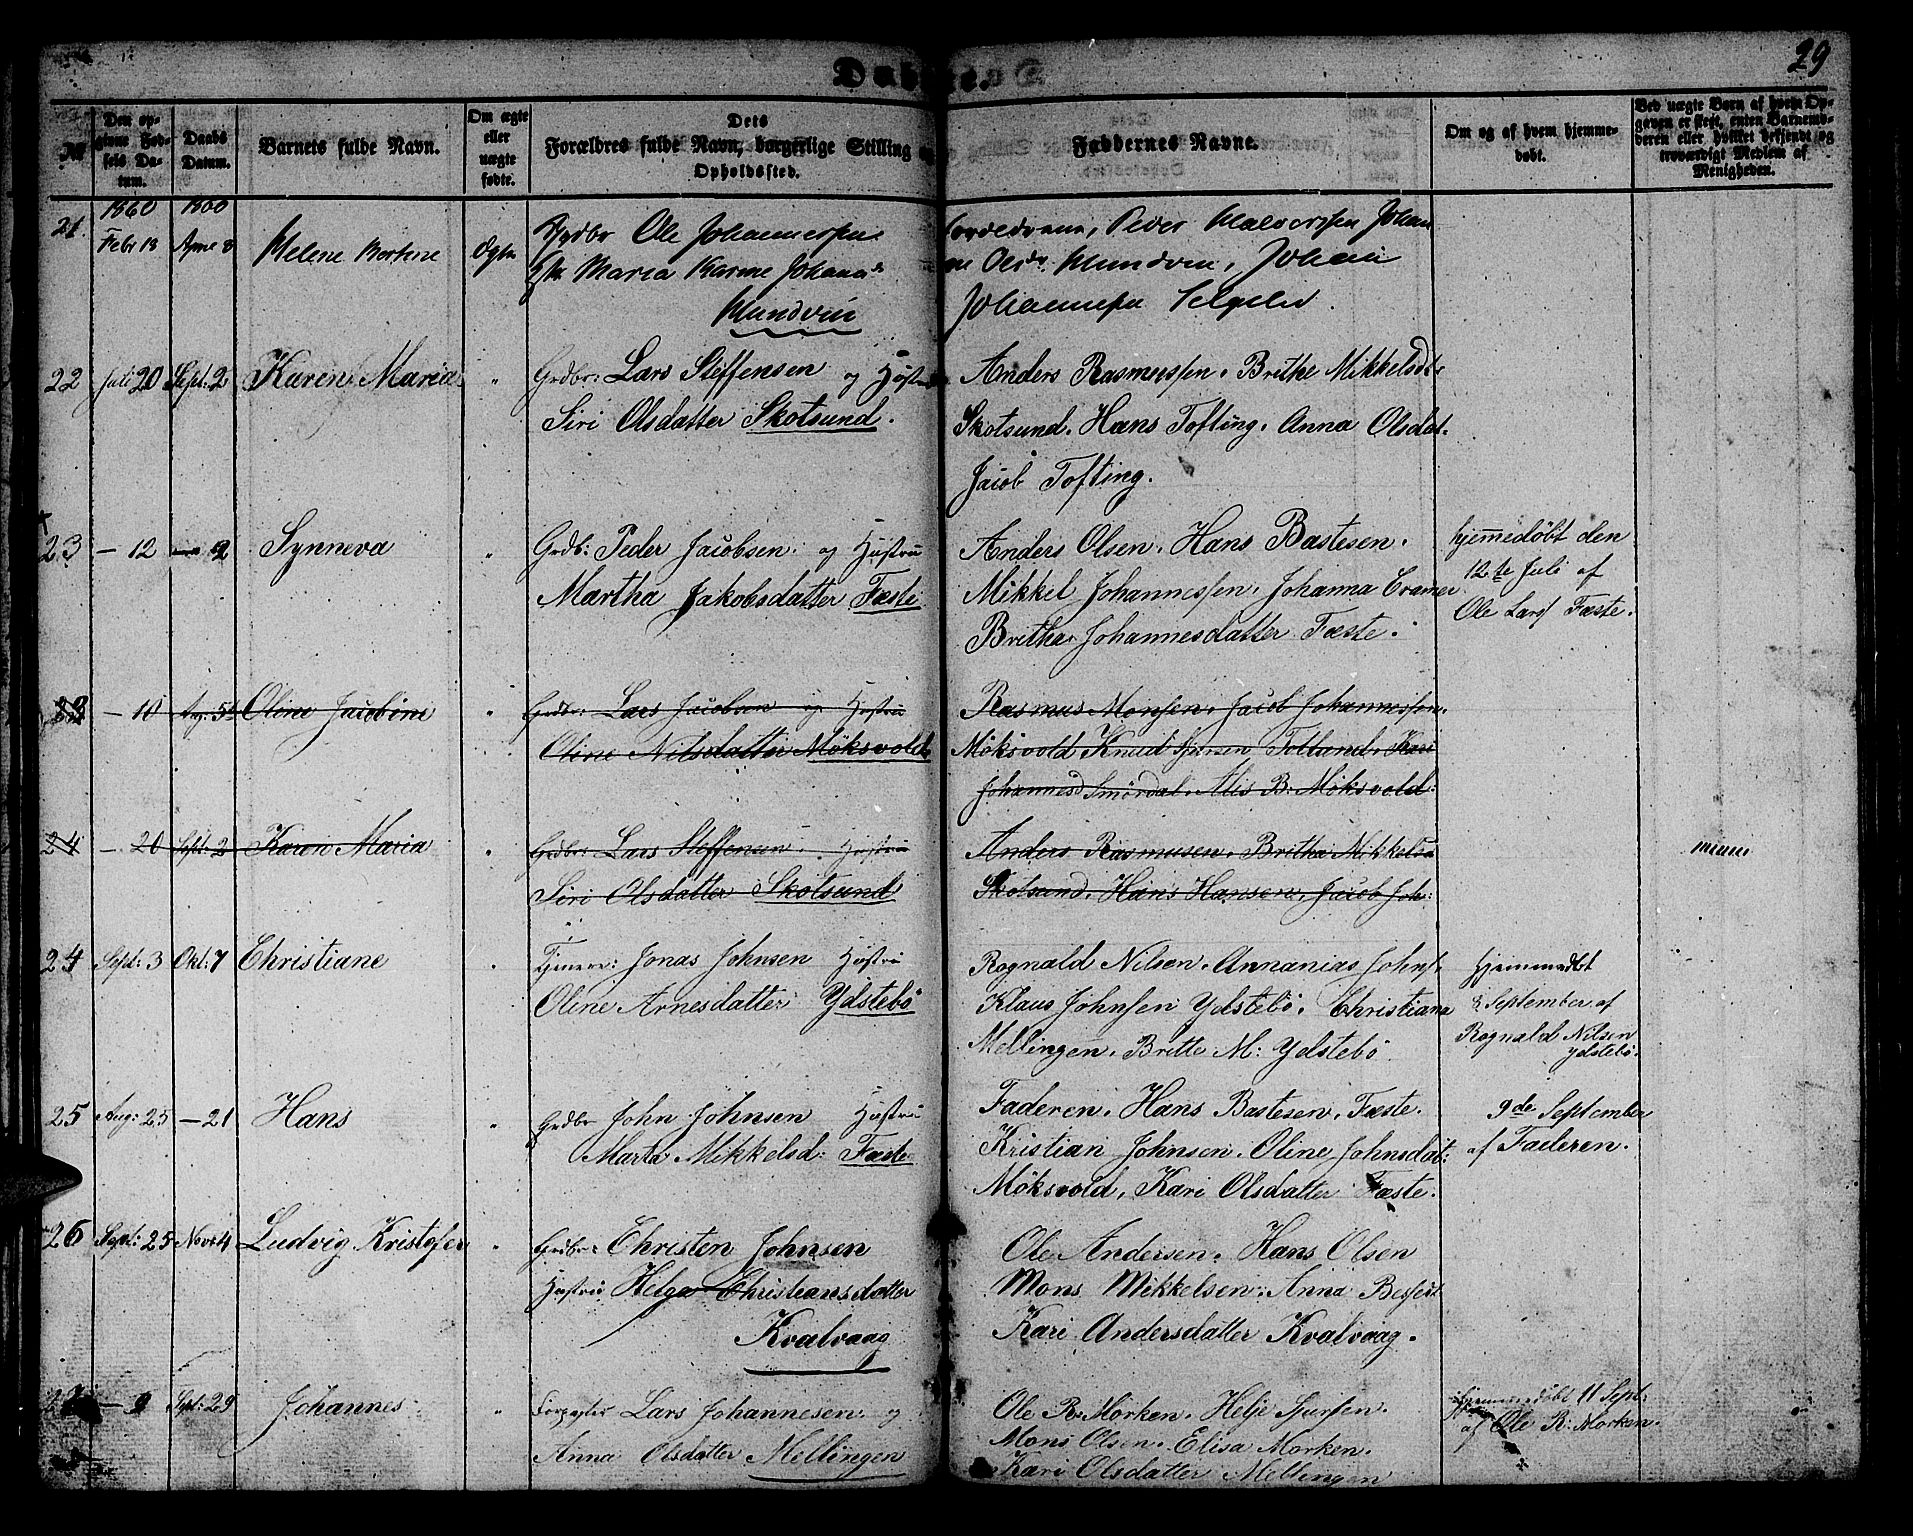 29
Døbte.
№
Den op-
givne Fød-
sels Da-
tum.
Daabs
Datum.
Barnets fulde Navn.
Om ægte
eller
uægte
født.
Dets
Forældres fulde Navn, borgerlige Stilling og
Opholdssted.
Faddernes Navne.
Om og af hvem hjemme-
døbt.
Ved uægte Børn af hvem Op-
gaven er skeet, enten Barnemo-
deren eller hvilket bekjendt og
troværdigt Medlem af
Menigheden.
1860 1860
21. Febr 13 Helene Ægte Ole Johannessen
Maria Karine Johannd
Mundvin
Peder Halvorsen Johan
Olsdr Mundvin,
Johannesen
22 Juli 20 Sept: 2 Karen Maria " Grdbr: Lars Steffensen og Hustru
Siri Olsdatter Skotsund.
Anders Rasmussen. Brithe Mikkelsdt.
Skotsund. Hans Tofting. Anna Olsdat.
Jacob Tofting.
23 - 12 - 2 Synneva " Grdb: Peder Jacobsen og Hustru
Martha Jakobsdatter Fæste
Anders Olsen. Hans Bastesen.
Mikkel Johannessen. Johanna Cramer
Britha Johannesdatter Fæste.
hjemmedøbt den
12te Juli af
Ole Lars Fæste.
23 - 10 Aug. 5 Oline Jacobine " Grdbr: Lars Jacobsen og Hustru
Oline Nilsdatter Möksvold
Rasmus Monsen. Jacob Johannessen.
Möksvold Knud Hansen Kari
Johannesd Smördal. Alis B: Möksvold.
24 - 20 Sept: 2 Karen Maria " Grdbr: Lars Steffensen. Hustru
Siri Olsdatter Skotsund
Anders Rasmusen. Britha Mikkelsd
Skotsund. Hans Hansen, Jacob Joh:
24 Sept: 3 Okt: 7 Christiane " Tjener: Jonas Johnsen Hustru
Oline Arnesdatter Ydstebö
Rognald Nilsen. Annanias Johns.
Klaus Johnsen Ydstebö. Christiana
Mellingen. Britte M: Ydstebö
Hjemmedøbt
September af
Rognald Nilsen
Ydstebö.
25 Aug: 25 - 21 Hans " Grdbr John Johnsen Hustru
Marta Mikkelsd: Fæste
Faderen. Hans Bastesen. Fæste.
Kristian Johnsen. Oline Johnsdat:
Möksvold, Kari Olsdatter Fæste.
9de September
af Faderen.
26 Sept: 25 Nov: 4 Ludvig Kristofer " Grdbr: Christen Johnsen
Hustru Helga Christiansdatter
Kvalvaag
Ole Andersen. Hans Olsen
Mons Mikkelsen. Anna
Kari Andersdatter Kvalvaag.
27 - 9 Sept: 29 Johannes " Lars Johannesen og
Anna Olsdatter Mellingen
Ole R. Morken. Helje Sjursen.
Mons Olsen. Elisa Morken.
Kari Olsdatter Mellingen
Hjemmedøbt 11 Sept:
af Ole R: Morken.